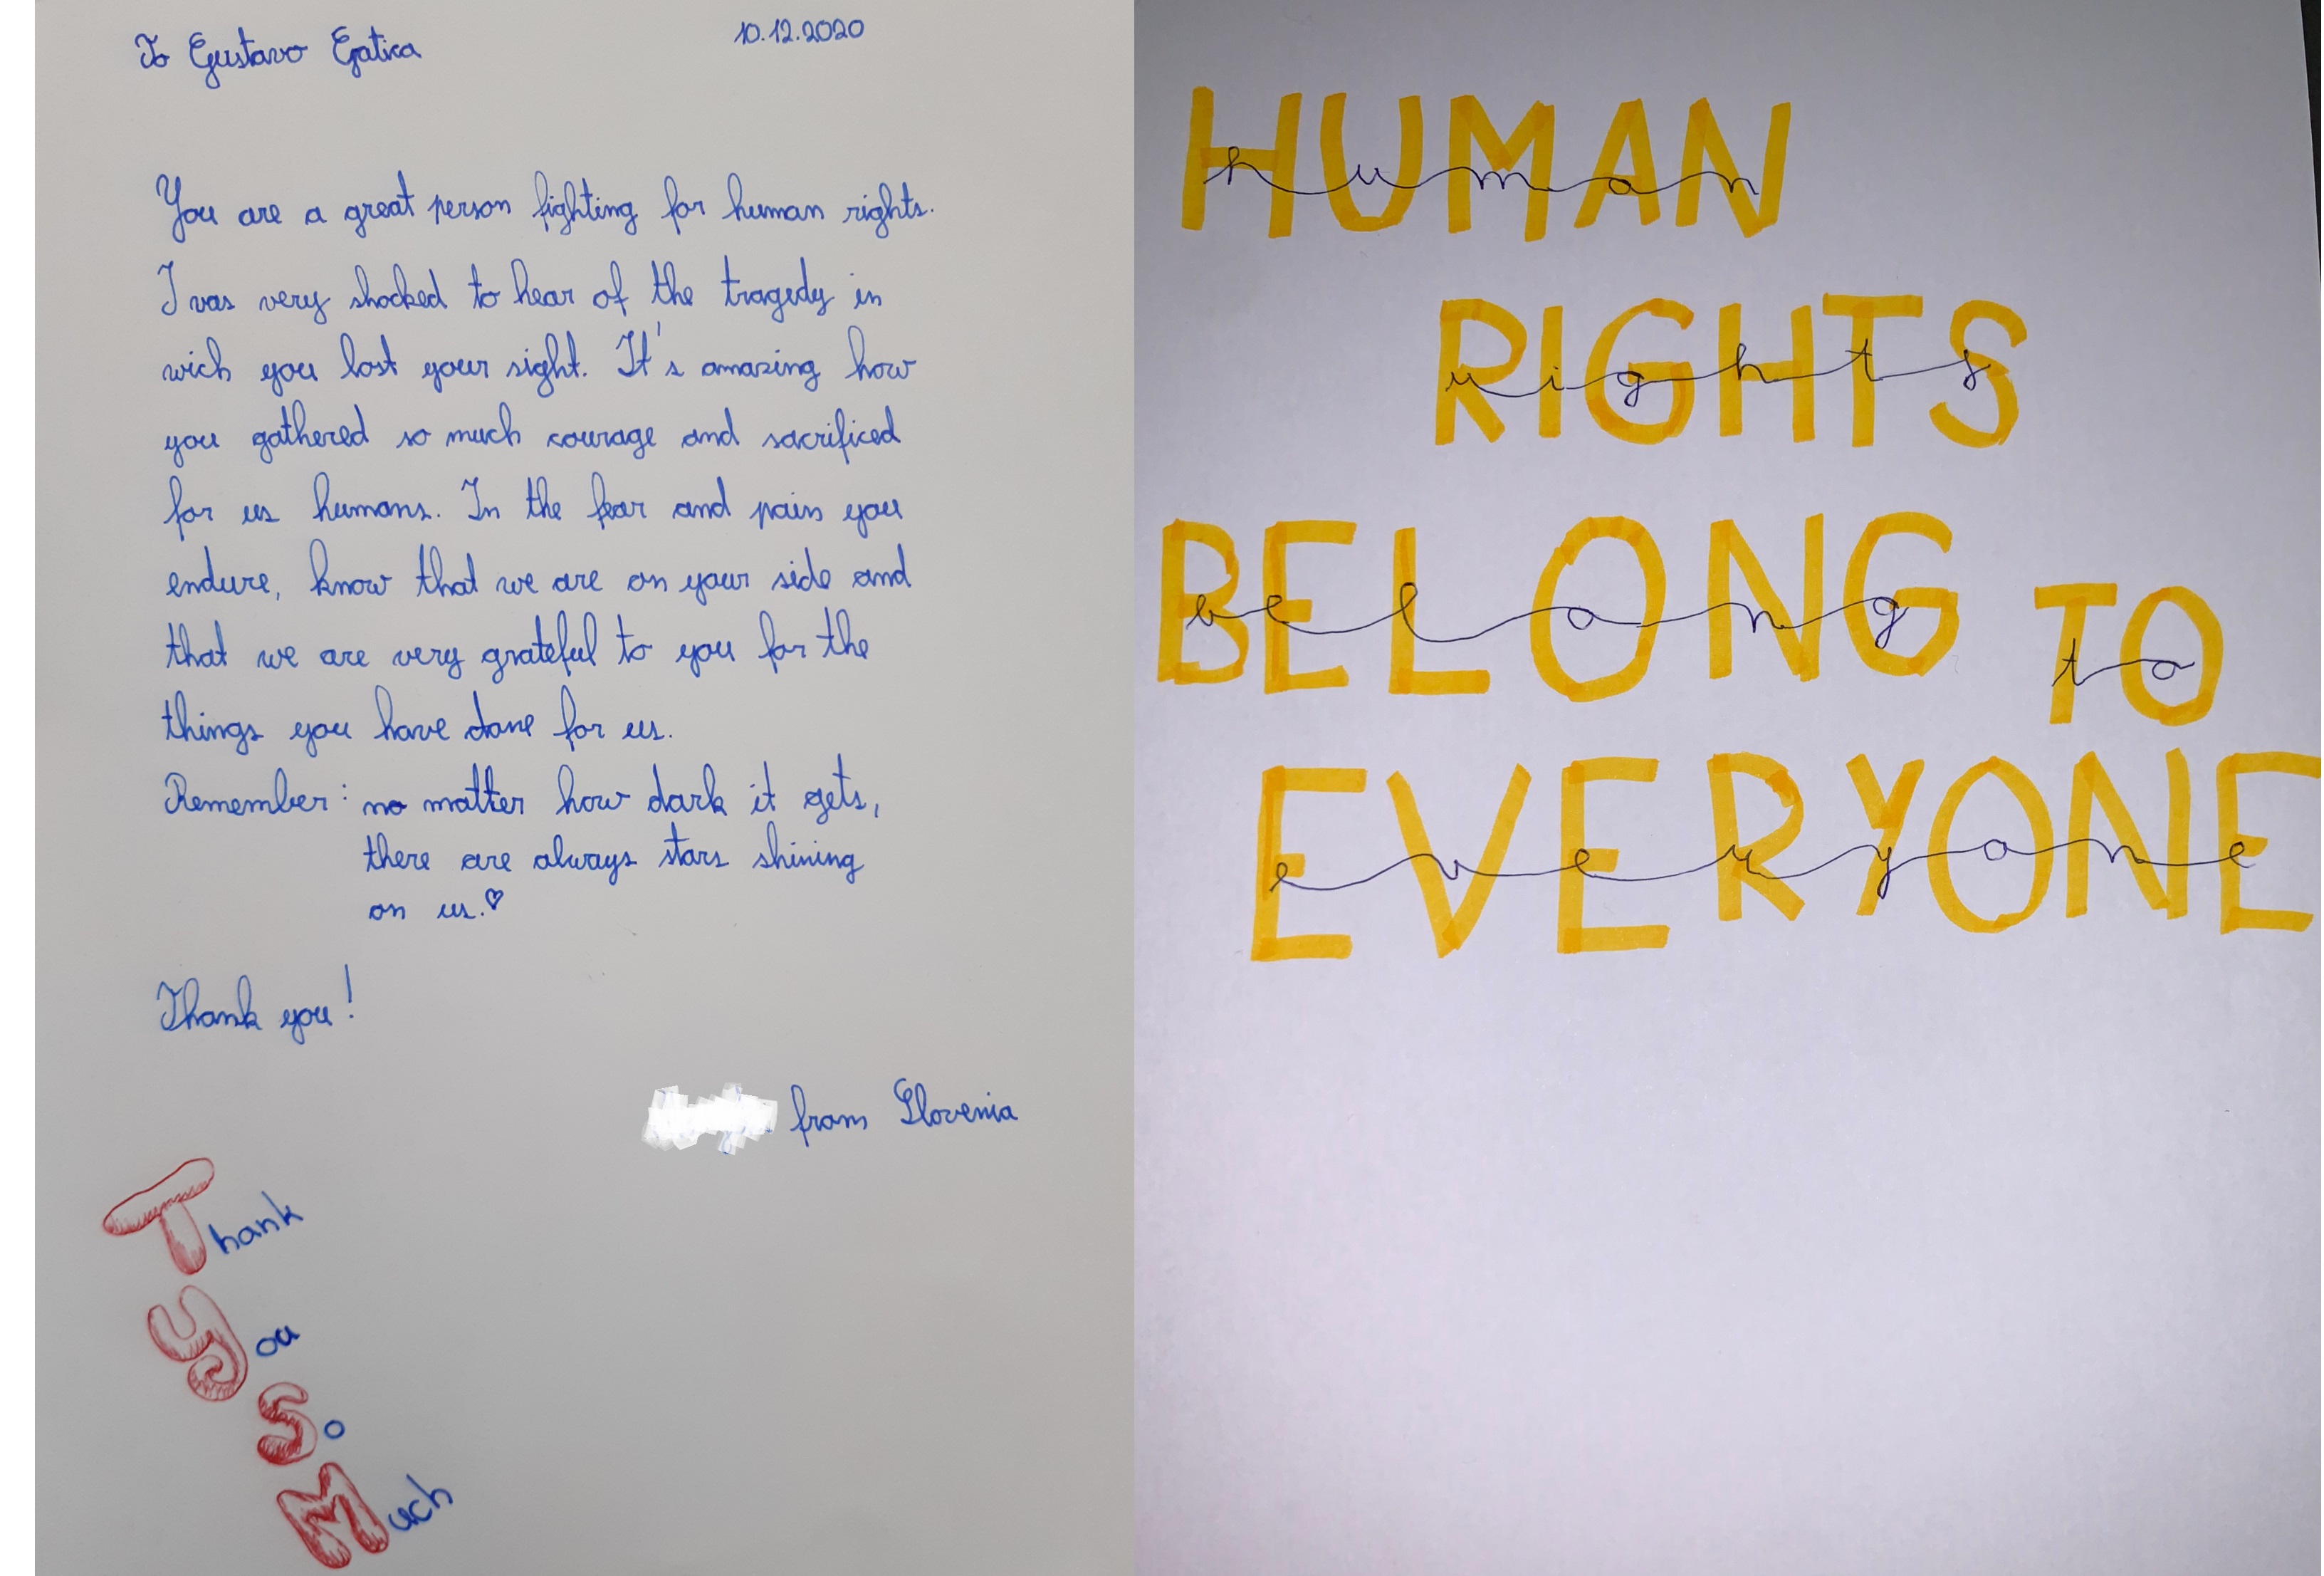 To Gustavo Gatica
10.12.2020
You are a great person fighting for human rights.
I vas very shocked to hear of the tragedy in
wich you lost your sight. It's amazing how
you gathered so much courage and sacrificed
for us humans. In the fear and pain you
endure, know that we are on your side and
that we are very grateful to you for the
things you have done for us.
Remember: no matter how dark it gets,
there are always stars shining
on us.♡
Thank you!
from Slovenia
Thank
you
So
Much
HUMAN
human
RIGHTS
rights
BELONG TO
belong to
EVERYONE
everyone